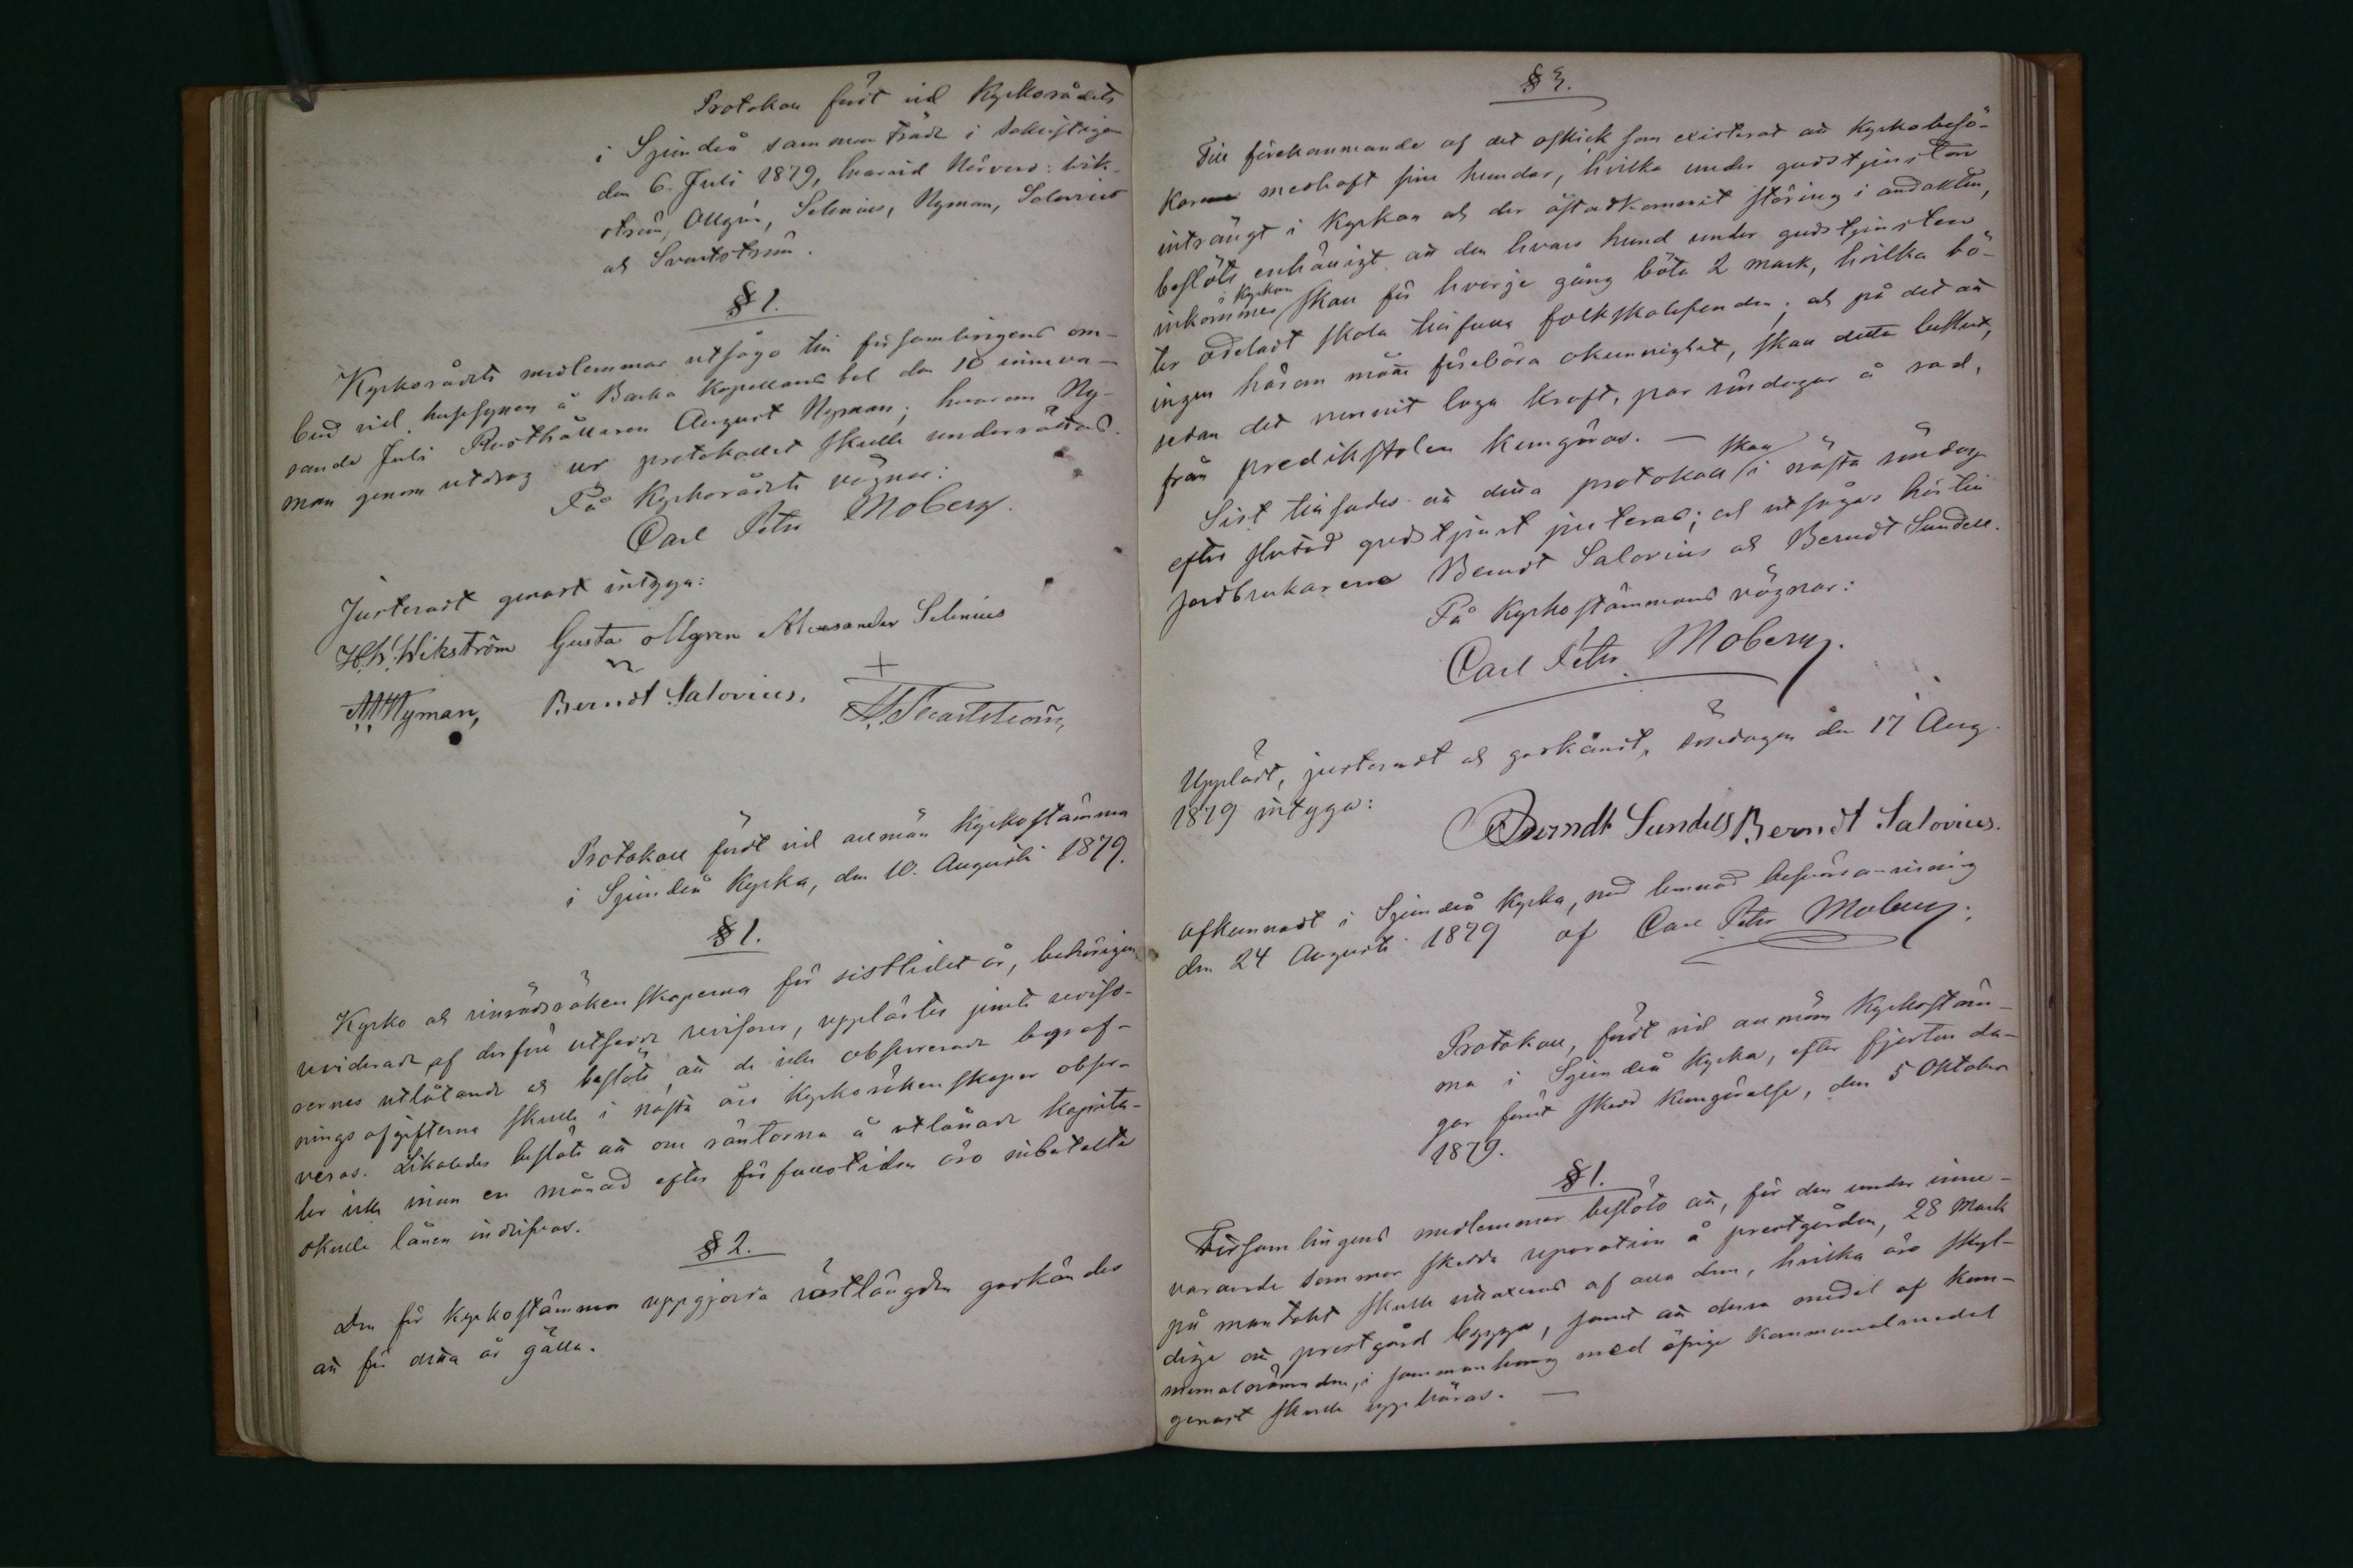 Protokoll fördt vid Kyrkorådets
i Sjundeå sammanträde i Sakristigan
den 6. Juli 1879, hvarvid närvoro: Wik-
ström, Ollgrén, Selenius, Nyman, Salovius
och Svartström.
§ 1.
Kyrkorådets medlemmar utsågo till församlingens om-
bud vid husesynen å Backa Kapellansbol den 10 inneva-
rande Juli Rusthållaren August Nyman; hvarom Ny-
man genom utdrag ur protokollet skulle underrättas.
På Kyrkorådets vägnar:
Carl Peter Moberg.
Justeradt genast intyga:
H.W. Wikström Gusta ollgren Alexsander Selenius
A. Nyman, Berndt Salovius. A. Svartström,
Protokoll fördt vid allmän Kyrkostämma
i Sjundeå Kyrka, den 10. Augusti 1879.
§ 1.
Kyrko och vinrådsräkenskaperna för sistlidet år, behörigen
reviderade af derföre utsedde revisorer, upplästes jemte reviso-
rernes utlåtande och beslöts, att de icke observerade begraf-
ningsafgifterna skulle i nästa års Kyrkoräkenskaper obser-
veras. Likaledes beslöts att om räntorna å utlånade kapita-
ler icke innan en månad efter förfallotiden äro inbetalta
skulle lånen indrifvas.
§ 2.
Den för Kyrkostämma uppgjorda röstlängden godkändes
att för detta år gälla.
§ 3.
Till förekommande af det oskick som existerat att Kyrkobesö-
karne medhaft sine hundar, hvilka under gudstjensten
inträngt i Kyrkan och der åstadkommit störing i andakten,
beslöts enhälligt att den hvars hund under gudstjensten
i Kyrkan
inkommer skall för hvarje gång böta 2 mark, hvilka bö-
ter odeladt skola tillfalla folkskolefonden; och på det att
ingen härom måtte förebära okunnighet, skall detta beslut,
sedan det vunnit laga kraft, par söndagar å rad,
från predikstolen kungöras. —
skall
Sist tillsades att detta protokoll i nästa söndag
efter slutad gudstjenst justeras; och utsågos härtill
jordbrukarena Berndt Salovius och Berndt Sundell.
På Kyrkostämmans vägnar:
Carl Peter Moberg.
Uppläst, justeradt och godkändt, söndagen den 17 Aug.
1879 intyga:
Berndt Sundell Berndt Salovius.
Afkunnadt i Sjundeå Kyrka, med lemnad besvärsanvisning
den 24 Augusti 1879 af Carl Peter Moberg.
Protokoll, fördt vid allmän Kyrkostäm-
ma i Sjundeå Kyrka, efter fjorton da-
gar förut skedd Kungörelse, den 5 Oktober
1879.
§ 1.
Församlingens medlemmar beslöto att, för den under inne-
varande sommar skedda reparation å prestgården, 28 Mark
på mantalet skulle uttaxeras af alla dem, hvilka äro skyl-
dige att prestgård bygga, samt att dessa medel af Kom-
munalnämnden, i sammanhang med öfrige Kommunalmedel
genast skulle uppbäras. —